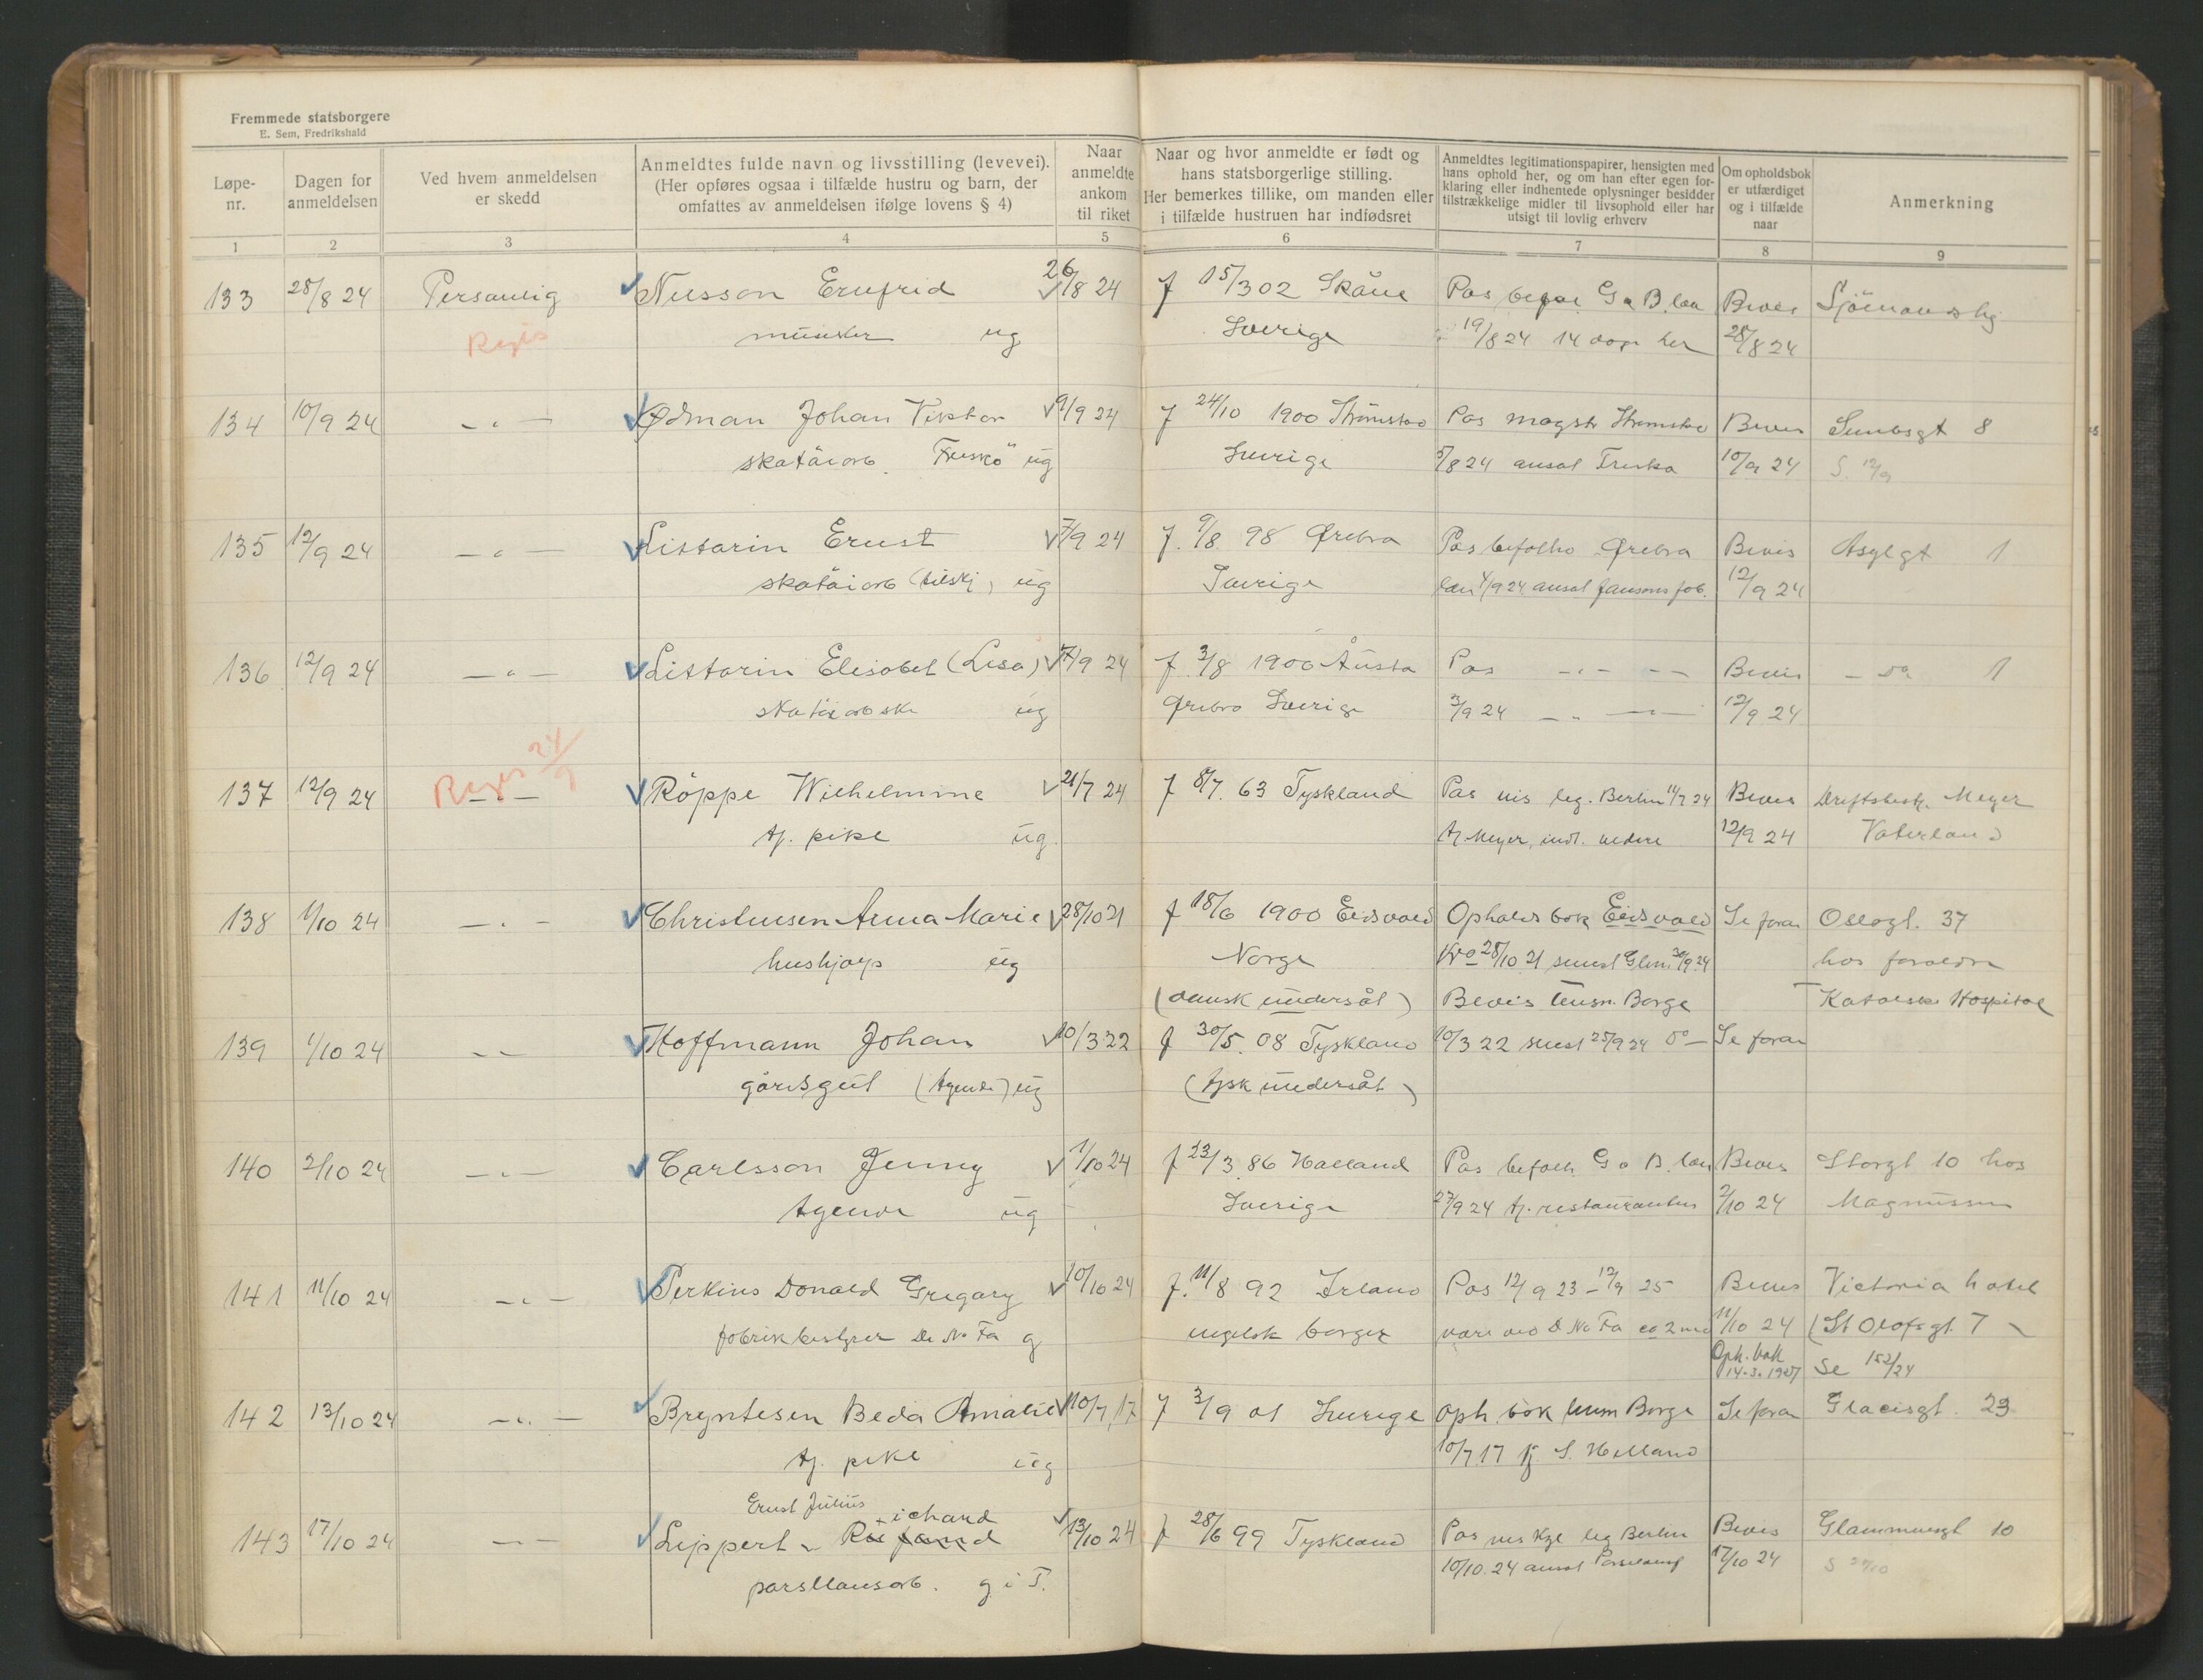 Fremmede statsborgere
E. Sem, Fredrikshald
Løpe-nr.
Dagen for anmeldelsen
Ved hvem anmeldelsen er skedd
Anmeldtes fulde navn og livsstilling (levevei).
(Her opføres ogsaa i tilfælde hustru og barn, der
omfattes av anmeldelsen ifølge lovens § 4)
Naar anmeldte ankom til riket
Naar og hvor anmeldte er født og
hans statsborgerlige stilling.
Her bemerkes tillike, om manden eller
i tilfælde hustruen har indfødsret
Anmeldtes legitimationspapirer, hensigten med
hans ophold her, og om han efter egen for-
klaring eller indhentede oplysninger besidder
tilstrækkelige midler til livsophold eller har
utsigt til lovlig erhverv
Om opholdsbok
er utfærdiget
og i tilfælde
naar
Anmerkning
1 2 3 4 5 6 7 8 9
133 28/8 24 Personlig Nilsson Ernfrid 26/8 24 f 15/3 02 Skåne Pas G o B. län Bevis
Regis ug Sverige 19/8 24 14 dage her 28/8 24
134 10/9 24 - " - Ødman Johan Viktor 9/9 24 f 24/10 1900 Strømstad Pas magstr Strømstad Bevis 8
skotöiarb. ug Sverige 5/8 24 ansat 10/9 24 S. 12/9
135 12/9 24 - " - Listarin Ernst 7/9 24 f. 9/8 98 Ørebro Pas befolho Ørebro Bevis Asylgt 1
skotöiarb (tilskj) ug Sverige län 4/9 24 ansat Jansons fab. 12/9 24
136 12/9 24 - " - Listarin Elisabet (Lisa) 7/9 24 f. 3/8 1900 Pas - " - - - Bevis - do 1
ug Ørebro Sverige 3/9 24 - " - - " - 12/9 24
137 12/9 24 Regis 24/9 - " - Röppe Wilhelmine 21/7 24 f 8/7. 63 Tyskland Pas vis leg. Berlin 11/7 24 Bevis Driftsbest. Meyer
tj. pike ug. tj. Meyer, 12/9 24 Vaterland
138 1/10 24 - " - Christensen Anna Marie 28/10 21 f 18/6 1900 Eidsvold Opholdsbok Eidsvold Se foran Oslogt. 37
hushjelp ug Norge 28/10 21 senest Glem. 30/9 24 hos foreldre
(dansk undersåt) Bevis lensm. Borge Katolske Hospital
139 1/10 24 - - Hoffmann Johan 10/3 22 f 30/5. 08 Tyskland 10/3 22 senest 25/9 24 do - Se foran
gårdsgut (tyende) ug (tysk undersåt)
140 2/10 24 - " - Carlsson Jenny 1/10 24 f 23/3. 86 Halland Pas befolk G o B. län Bevis Storgt 10 hos
tyende ug Sverige 27/9 24 tj. 2/10 24 Magnussen
141 11/10 24 - " - Perkins Donald Gregary 10/10 24 f. 11/8 92 Irland Pas 12/9 23 - 12/9 25 Bevis Victoria hotel
fabrikbestyrer De No Fa g engelsk borger være ved D No Fa ca 2 md 11/10 24 (St Olofsgt. 7
Oph. bok
14-3. 1927 Se 152/24
142 13/10 24 - " - Bryntesen Beda Amalie 10/7, 17 f 3/9 01 Sverige Oph bok lensm Borge Se foran Glacisgt. 23
tj. pike ug 10/7 17 tj. S. Helland
Ernst Julius
ichard
143 17/10 24 - - Lippert 13/10 24 f 28/6 99 Tyskland Pas vis leg Berlin Bevis 10
porsllansarb. g i T. 10/10. 24 ansat 17/10 24